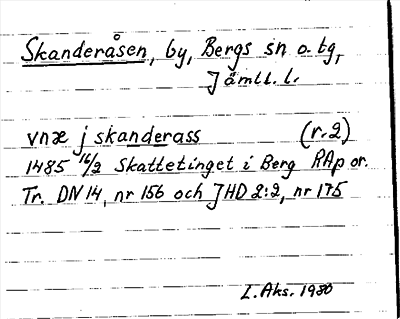 Skanderåsen, by, Bergs sn o. tg,
Jämtl. l.
vnæ j skanderass (r. 2)
1485 16/2 Skattetinget i Berg RAp or.
Tr. DN 14, nr 156 och JHD 2:2, nr 175
L. Aks. 1980